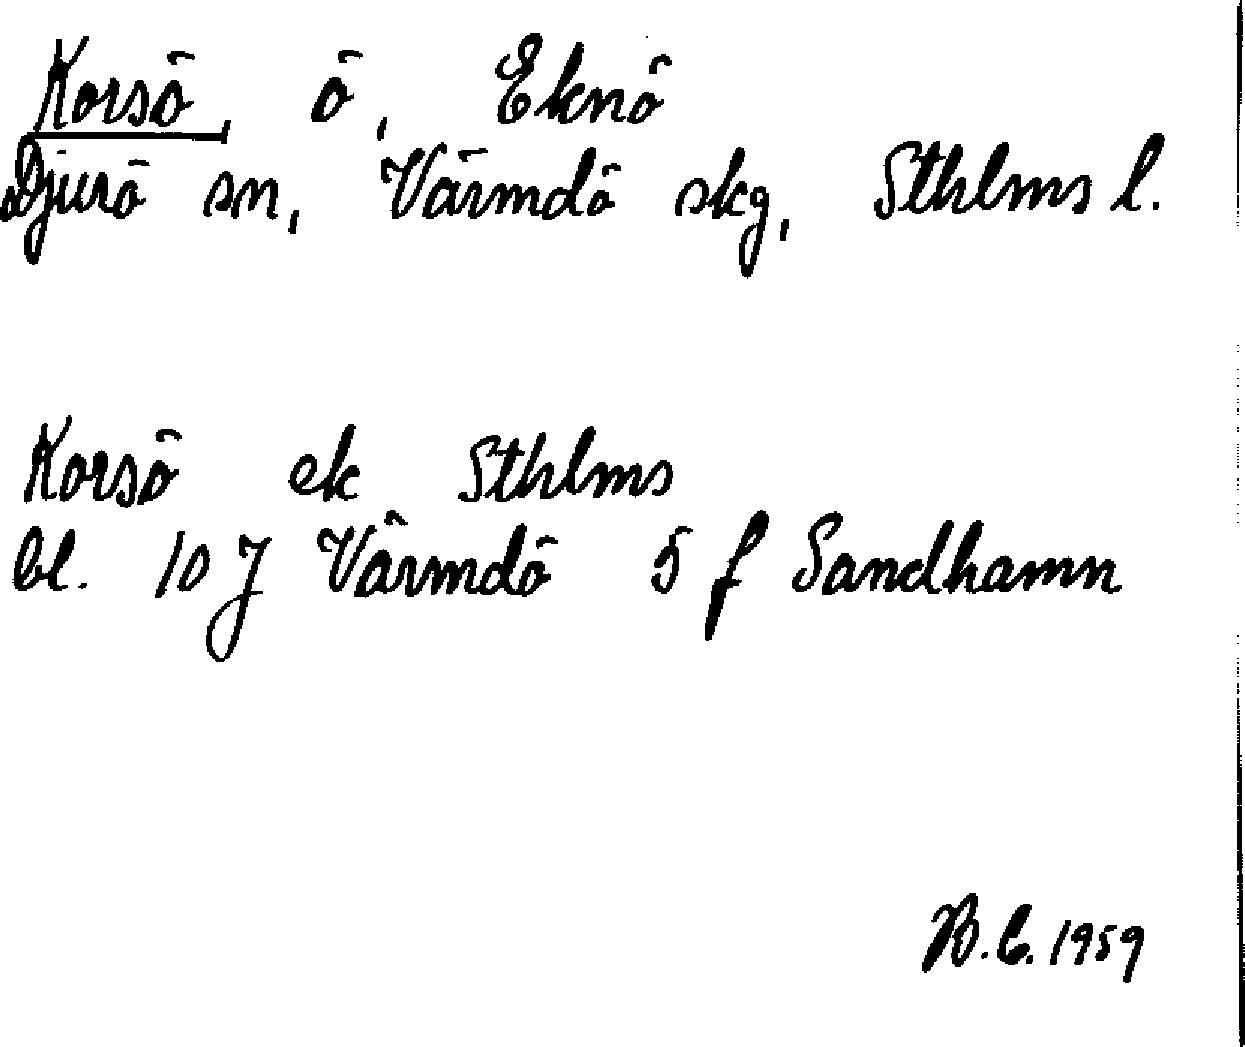 Korsö, ö, Eknö
Djurö sn, Värmdö skg, Sthlms l.
Korsö ek Sthlms
bl. 10 J Värmdö 5 f Sandhamn
B.C. 1959